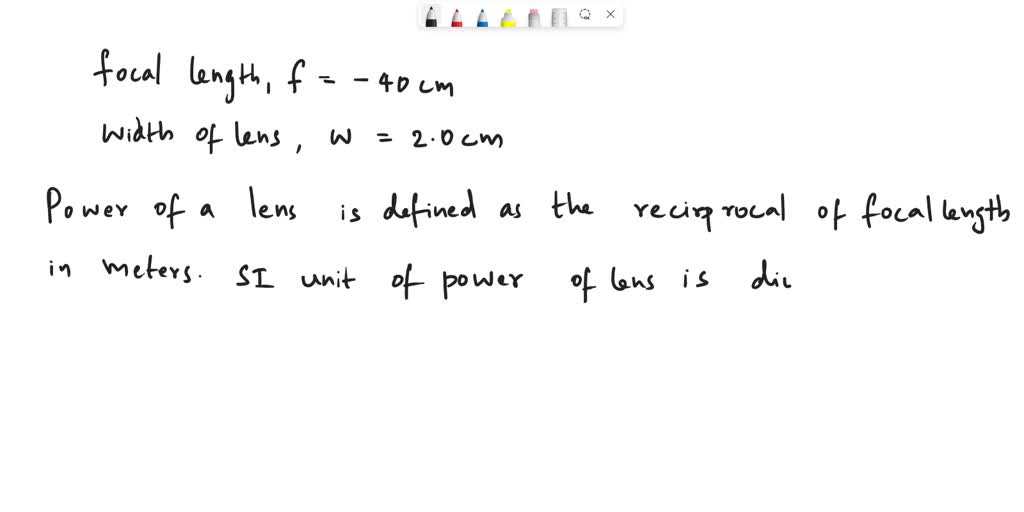 focal length, f = - 40 cm
width of lens, w = 2.0 cm
Power of a lens is defined as the reciprocal of focal length
in meters. SI unit of power of lens is dio